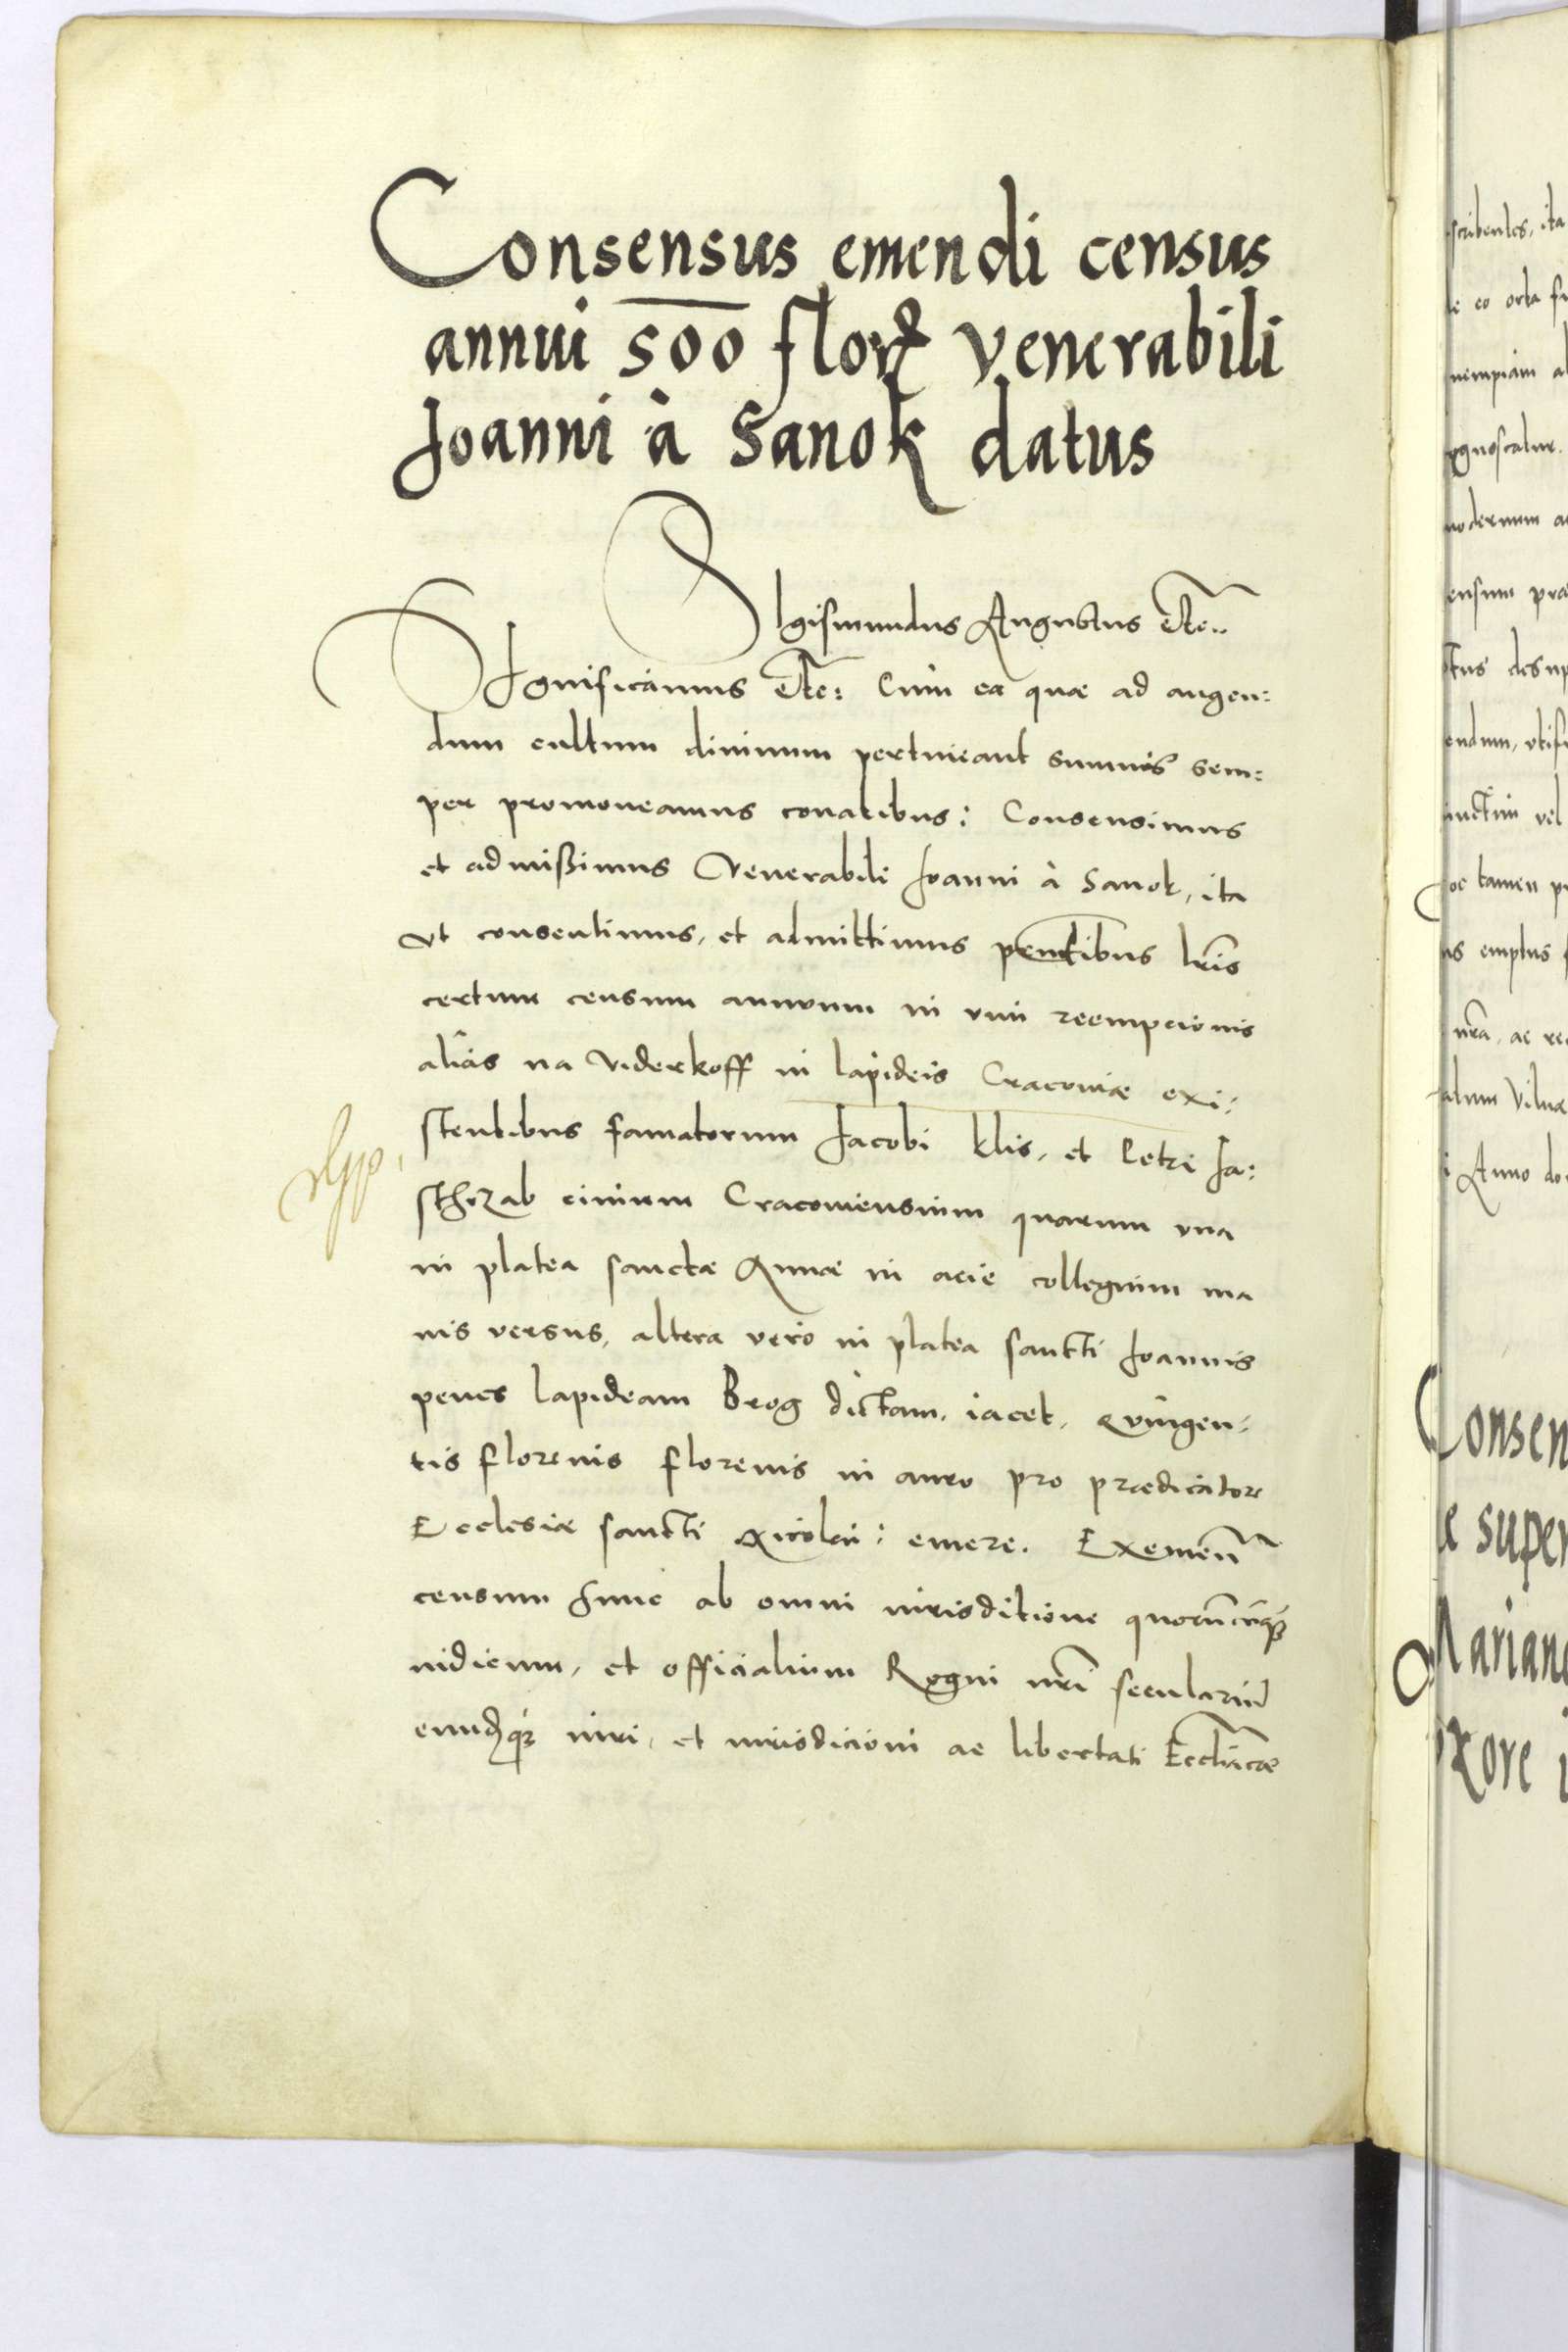 Consensus emendi census
annui 500 florꝝ venerabili
Joanni à Sanok datus
SIgismundus Augustus etc.
SIgnificamus etc: Cum ea quæ ad augen:
dum cultum divinum pertineant summis sem:
per promoveamus conatibus: Consensimus
et admißimus Venerabili Joanni à Sanok, ita
ut consentimus, et admittimus pentibus lris
certum censum annuum in vim reempcionis
alias na viderkoff in lapideis Cracoviæ exi:
stentibus famatorum Jacobi klis, et Petri Ja:
sthrzab civium Cracoviensium quarum una
in platea sanctæ Annæ in acie collegium ma
ius versus, altera vero in platea sancti Joannis
penes lapideam Brog dictam, iacet, quingen:
tis florenis florenis in auro pro prædicatore
Ecclesiæ sancti Nicolai: emere. Exemen
censum hunc ab omni iurisditione quorumcumq
iudicum, et officialium Regni nri secularium
eumdq iuri, et iurisdicioni ac libertati Ecclicæ
scribentes, ita
eo orta
ognoscatur.
modernum
ensum
endum,
vel
oc tamen
us emptus
nra, ac
Vilnæ
Anno
Consen
super
Marian
xore